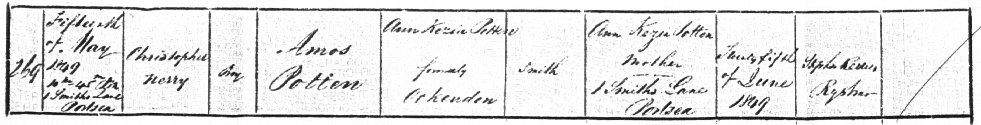 269
Fifteenth
of May
1849
10 hrs 45 m
1 Smiths Lane
Portsea
Christopher
Nerry
Boy
Amos
Potten
Ann Kezia Potten
formerly
Ockendon
Smith
Ann Kezia Potten
Mother
1 Smiths Lane
Portsea
Twenty fifth
of June
1849
Registrar